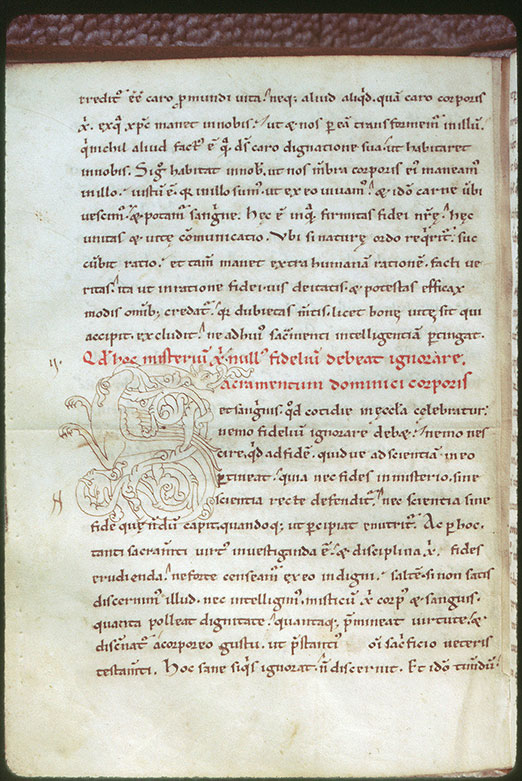 credit᷑ ee᷑ caro ꝑmundi vita. neq; aliud aliqd. quā caro corporis
xp̄i. exq̇ xp̄c manet innobis. ut & nos ꝑ eā transformem᷑ inillū.
qm̄ nichil aliud factū ē q̇ d̄s caro dignatione sua. ut habitaret
innobis. Sig̊ habitat innob᷑. ut nos mēbra corporis ei᷑ maneam᷑
inillo. iustū ē. qr inillo sum᷑. ut ex eo uiuam᷑. & ideo carne ūbi
uescim᷑. & potam᷑ sanguine. hęc ē inq̇ firmitas fidei nr̄ę. hęc
unitas & uitę cōmunicatio. Vbi si naturę ordo reqrit᷑. suc
cūbit ratio. et tam̄ manet extra humanā rationē. facti ve
ritas. ita ut inratione fidei. uis deitatis. & potestas efficax
modis omib; credat᷑. qr dubietas m̄tis. licet bonę uitę sit qui
accipit. excludit. ne adhui᷑ sac̄menti intelligentiā ꝑtingat.
Qd̄ hoc misteriū xp̄i. null᷑ fideliū debeat ignorare.
ij.
Sacramentum dominici corporis
et sanguis. qd̄ cotidie in ęccl̄a celebratur.
nemo fideliū ignorare debet. nemo nes
cire. qd̄ ad fidē. quid ve ad scientiā in eo
ꝑtineat. quia nec fides in misterio. sine
scientia recte defendit᷑. nec scientia sine
fide quę n̄dū capit. quandoq; ut ꝑcipiat enutrit᷑. Ac ꝑ hoc.
tanti sacram̄ti uirt᷑ inuestiganda ē. & disciplina xp̄i. fides
erudienda. ne forte censeam᷑ ex eo indigni. saltē. si non satis
discernim᷑ illud. nec intelligim᷑. misticū xp̄i corp᷑ & sanguis.
quanta polleat dignitate. quantaq; p̄mineat uirtute. &
discernat᷑ a corporeo gustu. ut p̄stanti᷑ oī sac̄ficio ueteris
testam̄ti. Hoc sane siq̇s ignorat. n̄ discernit. Et ideo timēdū.